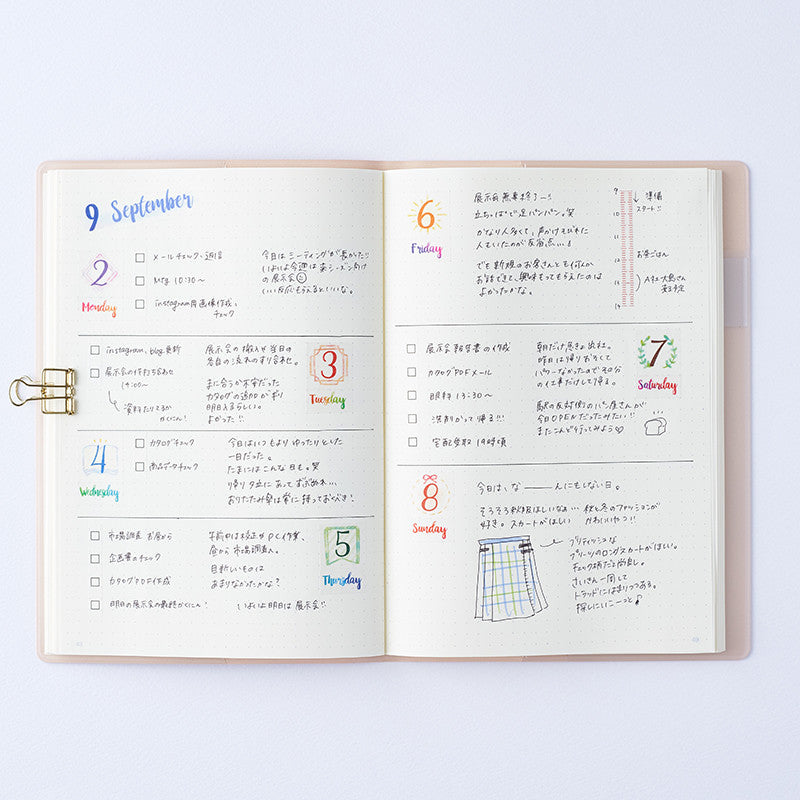 9 September
2
Monday
メールチェック・返信
Mtg 10:30〜
instagram用画像作成、
チェック
今日はミーティングが長かった!!
いよいよ今週は来シーズン向け
の展示会
いい反応もらえるといいな。
3
Tuesday
instagram、blog更新
展示会の件打ち合わせ
14:00〜
資料たりてるか
かくにん!
展示会の搬入や当日の
各自の流れのすり合わせ。
まに合うか不安だった
カタログの追加が刷り
明日入るらしい。
よかった!!
4
Wednesday
カタログチェック
商品データチェック
今日はいつもよりゆったりとした
一日だった。
たまにはこんな日も。笑
帰り夕立にあってずぶぬれ…
おりたたみ傘は常に持っておくべき!
5
Thursday
市場調査 お昼から
企画書のチェック
カタログPDF作成
明日の展示会の最終かくにん!
午前中は校正やPC作業、
昼から市場調査へ。
目新しいものは
あまりなかったかな?
いよいよ明日は展示会!!
6
Friday
展示会無事終了ー!!
立ちっぱで足パンパン。笑
かなり人多くて、声かけそびれた
人もいたのが反省点…!
でも新規のお客さんとも何人か
お話できて、興味もってもらえたのは
よかったかな。
9
10
11
12
13
14
準備
スタート!!
お昼ごはん
A社大島さん
来る予定
7
Saturday
展示会報告書の作成
カタログPDFメール
眼科 13:30〜
洗剤かって帰る!!
宅配受取 19時頃
朝だけ急きょ出社。
昨日は帰りおそくて
パワーなかったので30分
の仕事だけして帰る。
駅の反対側のパン屋さんが
今日OPENだったみたい!!
またこんど行ってみよう♡
8
Sunday
今日は、な――んにもしない日。
そろそろ秋服ほしいなぁ… 秋と冬のファッションが
好き。スカートがほしい かわいいやつ!!
ブリティッシュな
プリーツのロングスカートがほしい。
チェック柄だと尚良し。
さいきん一周して
トラッドにはまりつつある。
探しにいこーっと♪